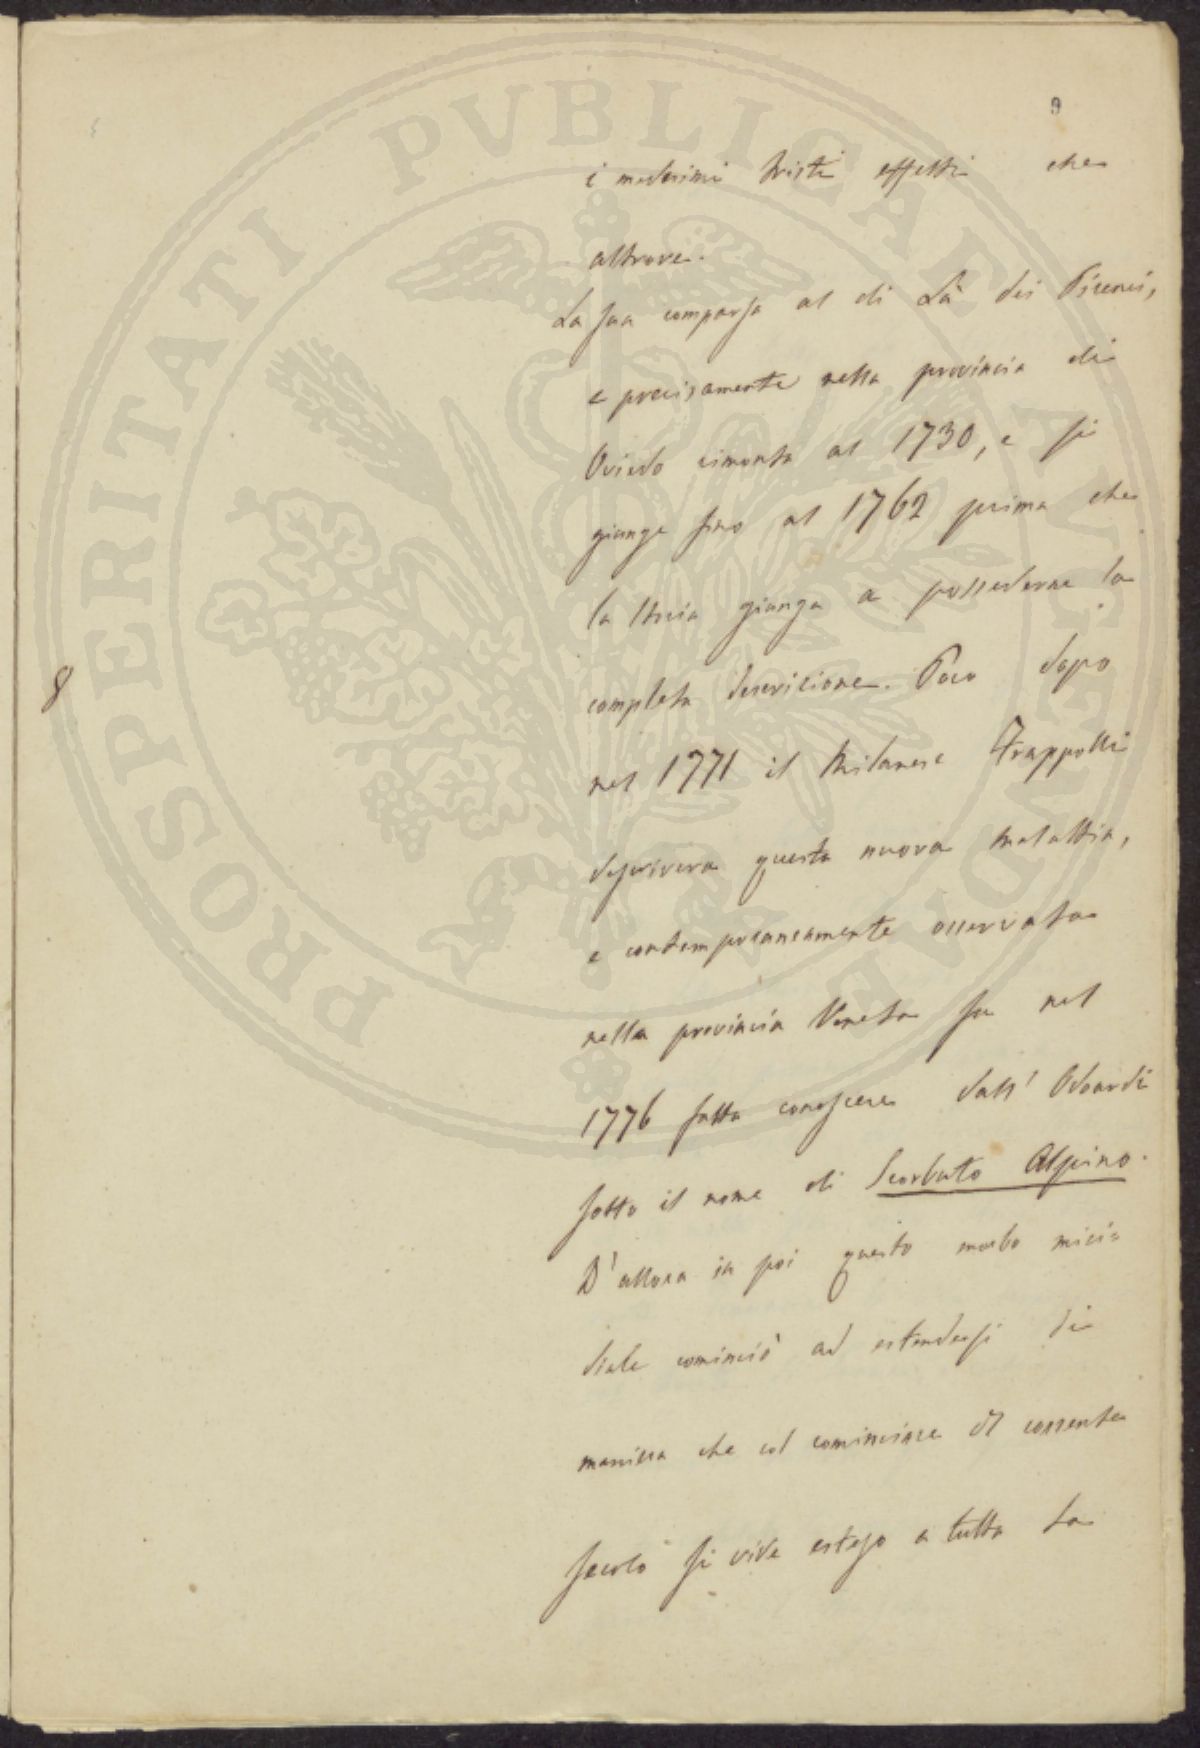 9
i medesimi tristi effetti che
altrove.
La sua comparsa al di Là dei Pirenei,
e precisamente nella provincia di
Oviedo rimonta al 1730, e si
giunge fino al 1762 prima che
la Storia giunga a possederne la
completa descrizione. Poco dopo
nel 1771 il Milanese Frappolli
descriveva questa nuova malattia,
e contemporaneamente osservata
nella provincia Veneta fu nel
8
1776 fatta conoscere dall' Odoardi
sotto il nome di Scorbuto Alpino.
D'allora in poi questo morbo mici=
diale cominciò ad estendersi di
maniera che col cominciare del corrente
secolo si vide esteso a tutta la
PROSPERITATI PVBLICAE AVGENDAE